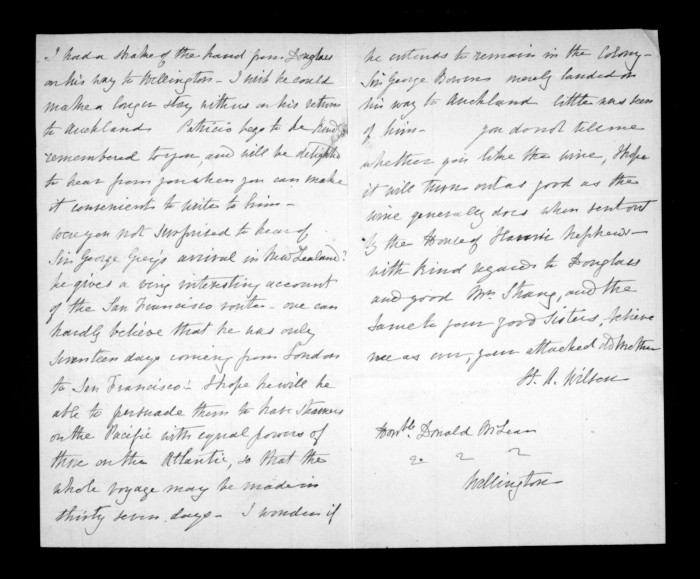 I had a shake of the hand from Douglas
on his way to Wellington - I wish he could
make a longer stay with us on his return
to Auckland Patricio begs to be kindly
remembered to you and will be delighted
to hear from you when you can make
it convenient to write to him -
were you not surprised to hear of
Sir George Grey's arrival in New Zealand?
he gives a very interesting account
of the San Francisco route - one can
hardly believe that he was only
seventeen days coming from London
to San Francisco - I hope he will be
able to persuade them to have Steamers
on the Pacific with equal powers of
those on the Atlantic, so that the
whole voyage may be made in
thirty seven days - I wonder if
he intends to remain in the Colony -
Sir George Bowen merely landed on
his way to Auckland little was seen
of him - you do not tell me
whether you like the wine, I hope
it will turn out as good as the
wine generally does when sent out
by the House of Nephews -
with kind regards to Douglas
and good Mrs Strang, and the
same to your good Sisters, believe
me as ever, your attached old Mother
H. A. Wilson
Honble Donald McLean
Wellington